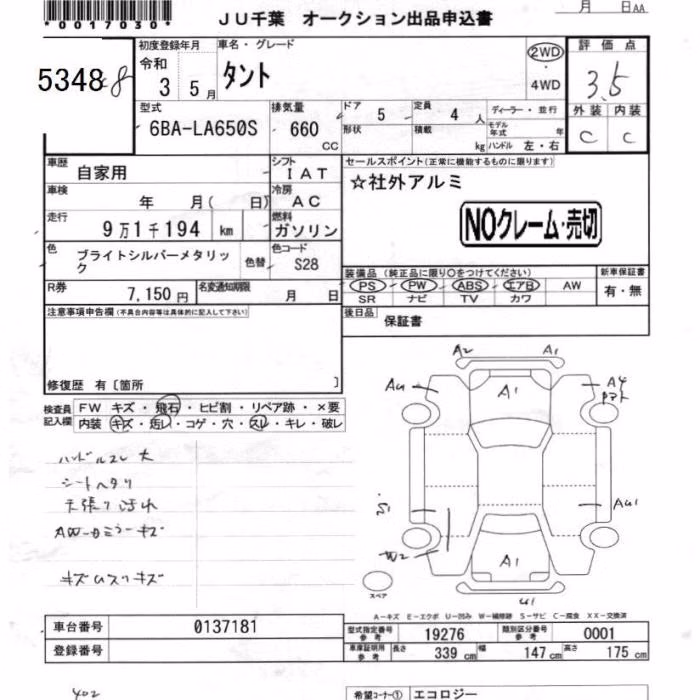 *0017030*
JU千葉 オークション出品申込書
月 日AA
5348
8
初度登録年月
令和
3 5月
車名・グレード
タント
2WD
4WD
評価点
3.5
外装 内装
C C
型式
6BA-LA650S
排気量
660
CC
ドア
5
形状
定員
4 人
積載
kg
ディーラー・並行
モデル年式 年
ハンドル 左・右
車歴
自家用
シフト
IAT
車検
年 月( 日)
冷房
AC
走行
9万1千194 km
燃料
ガソリン
色
ブライトシルバーメタリック
色替
色コード
S28
R券
7,150円
名変通知期限
月 日
セールスポイント(正常に機能するものに限ります)
☆社外アルミ
NOクレーム・売切
装備品(純正品に限り○をつけてください)
PS PW ABS エアB AW
SR ナビ TV カワ
新車保証書
有・無
後日品
保証書
注意事項申告欄(不具合内容等は具体的に記入して下さい)
修復歴 有〔箇所 〕
検査員記入欄
FW キズ・飛石・ヒビ割・リペア跡・×要
内装 キズ・汚レ・コゲ・穴・スレ・キレ・破レ
ハンドルスレ大
シートヘタリ
天張り汚れ
キズ
A2 A1
A4 A1 A4
AU1
W2 A1
U1
スペア
A-キズ E-エクボ U-凹み W-補修跡 S-サビ C-腐食 XX-交換済
車台番号
0137181
登録番号
型式指定番号参考
19276
類別区分番号参考
0001
車庫証明用参考
長さ 339 cm
幅 147 cm
高さ 175 cm
402
希望コーナー①
エコロジー